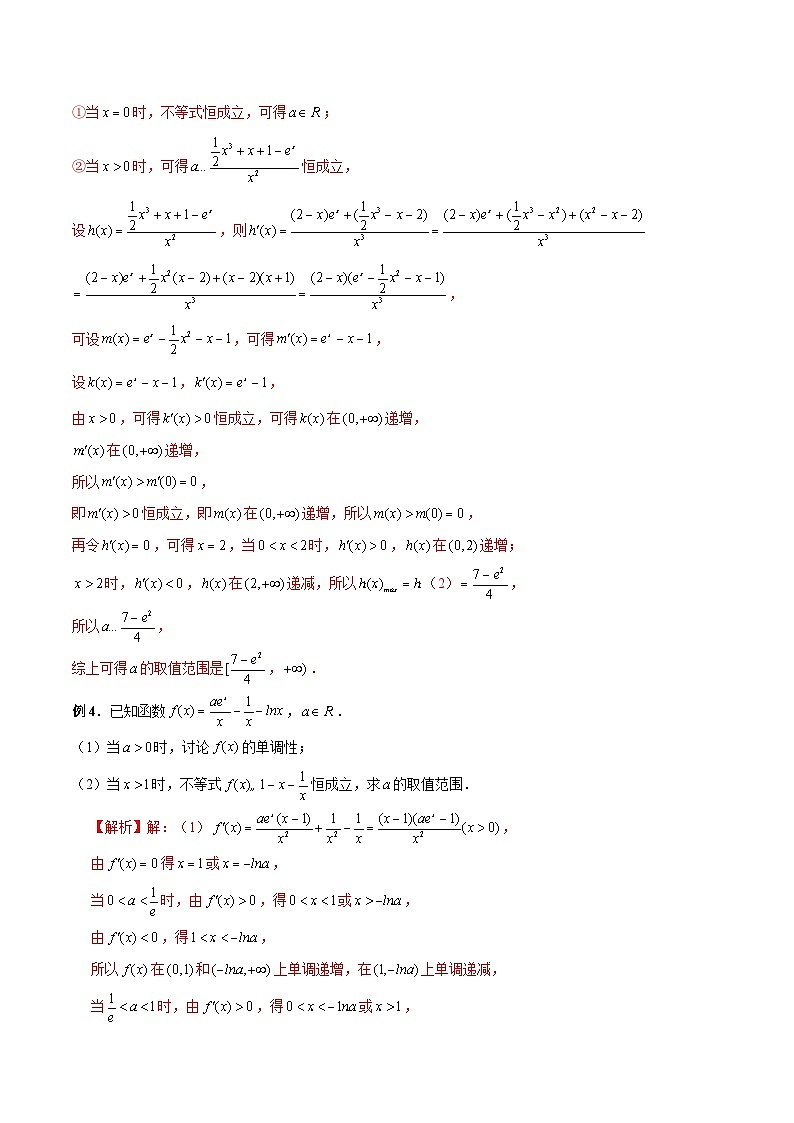 ①当 x = 0 时，不等式恒成立，可得 a ∈ R；
②当 x > 0 时，可得 a… \frac{\frac{1}{2}x^3 + x + 1 - e^x}{x^2} 恒成立，
设 h(x) = \frac{\frac{1}{2}x^3 + x + 1 - e^x}{x^2}，则 h′(x) = \frac{(2 - x)e^x + (\frac{1}{2}x^3 - x - 2)}{x^3} = \frac{(2 - x)e^x + (\frac{1}{2}x^3 - x^2) + (x^2 - x - 2)}{x^3}
= \frac{(2 - x)e^x + \frac{1}{2}x^2(x - 2) + (x - 2)(x + 1)}{x^3} = \frac{(2 - x)(e^x - \frac{1}{2}x^2 - x - 1)}{x^3}，
可设 m(x) = e^x - \frac{1}{2}x^2 - x - 1，可得 m′(x) = e^x - x - 1，
设 k(x) = e^x - x - 1，k′(x) = e^x - 1，
由 x > 0，可得 k′(x) > 0 恒成立，可得 k(x) 在 (0, +∞) 递增，
m′(x) 在 (0, +∞) 递增，
所以 m′(x) > m′(0) = 0，
即 m′(x) > 0 恒成立，即 m(x) 在 (0, +∞) 递增，所以 m(x) > m(0) = 0，
再令 h′(x) = 0，可得 x = 2，当 0 < x < 2 时，h′(x) > 0，h(x) 在 (0, 2) 递增；
x > 2 时，h′(x) < 0，h(x) 在 (2, +∞) 递减，所以 h(x)_{max} = h（2）= \frac{7 - e^2}{4}，
所以 a… \frac{7 - e^2}{4}，
综上可得 a 的取值范围是 [\frac{7 - e^2}{4}，+∞)．
例4．已知函数 f(x) = \frac{ae^x}{x} - \frac{1}{x} - lnx，a ∈ R．
（1）当 a > 0 时，讨论 f(x) 的单调性；
（2）当 x > 1 时，不等式 f(x)„ 1 - x - \frac{1}{x} 恒成立，求 a 的取值范围．
【解析】解：（1） f′(x) = \frac{ae^x(x - 1)}{x^2} + \frac{1}{x^2} - \frac{1}{x} = \frac{(x - 1)(ae^x - 1)}{x^2}(x > 0)，
由 f′(x) = 0 得 x = 1 或 x = -lna，
当 0 < a < \frac{1}{e} 时，由 f′(x) > 0，得 0 < x < 1 或 x > -lna，
由 f′(x) < 0，得 1 < x < -lna，
所以 f(x) 在 (0,1) 和 (-lna, +∞) 上单调递增，在 (1, -lna) 上单调递减，
当 \frac{1}{e} < a < 1 时，由 f′(x) > 0，得 0 < x < -lna 或 x > 1，